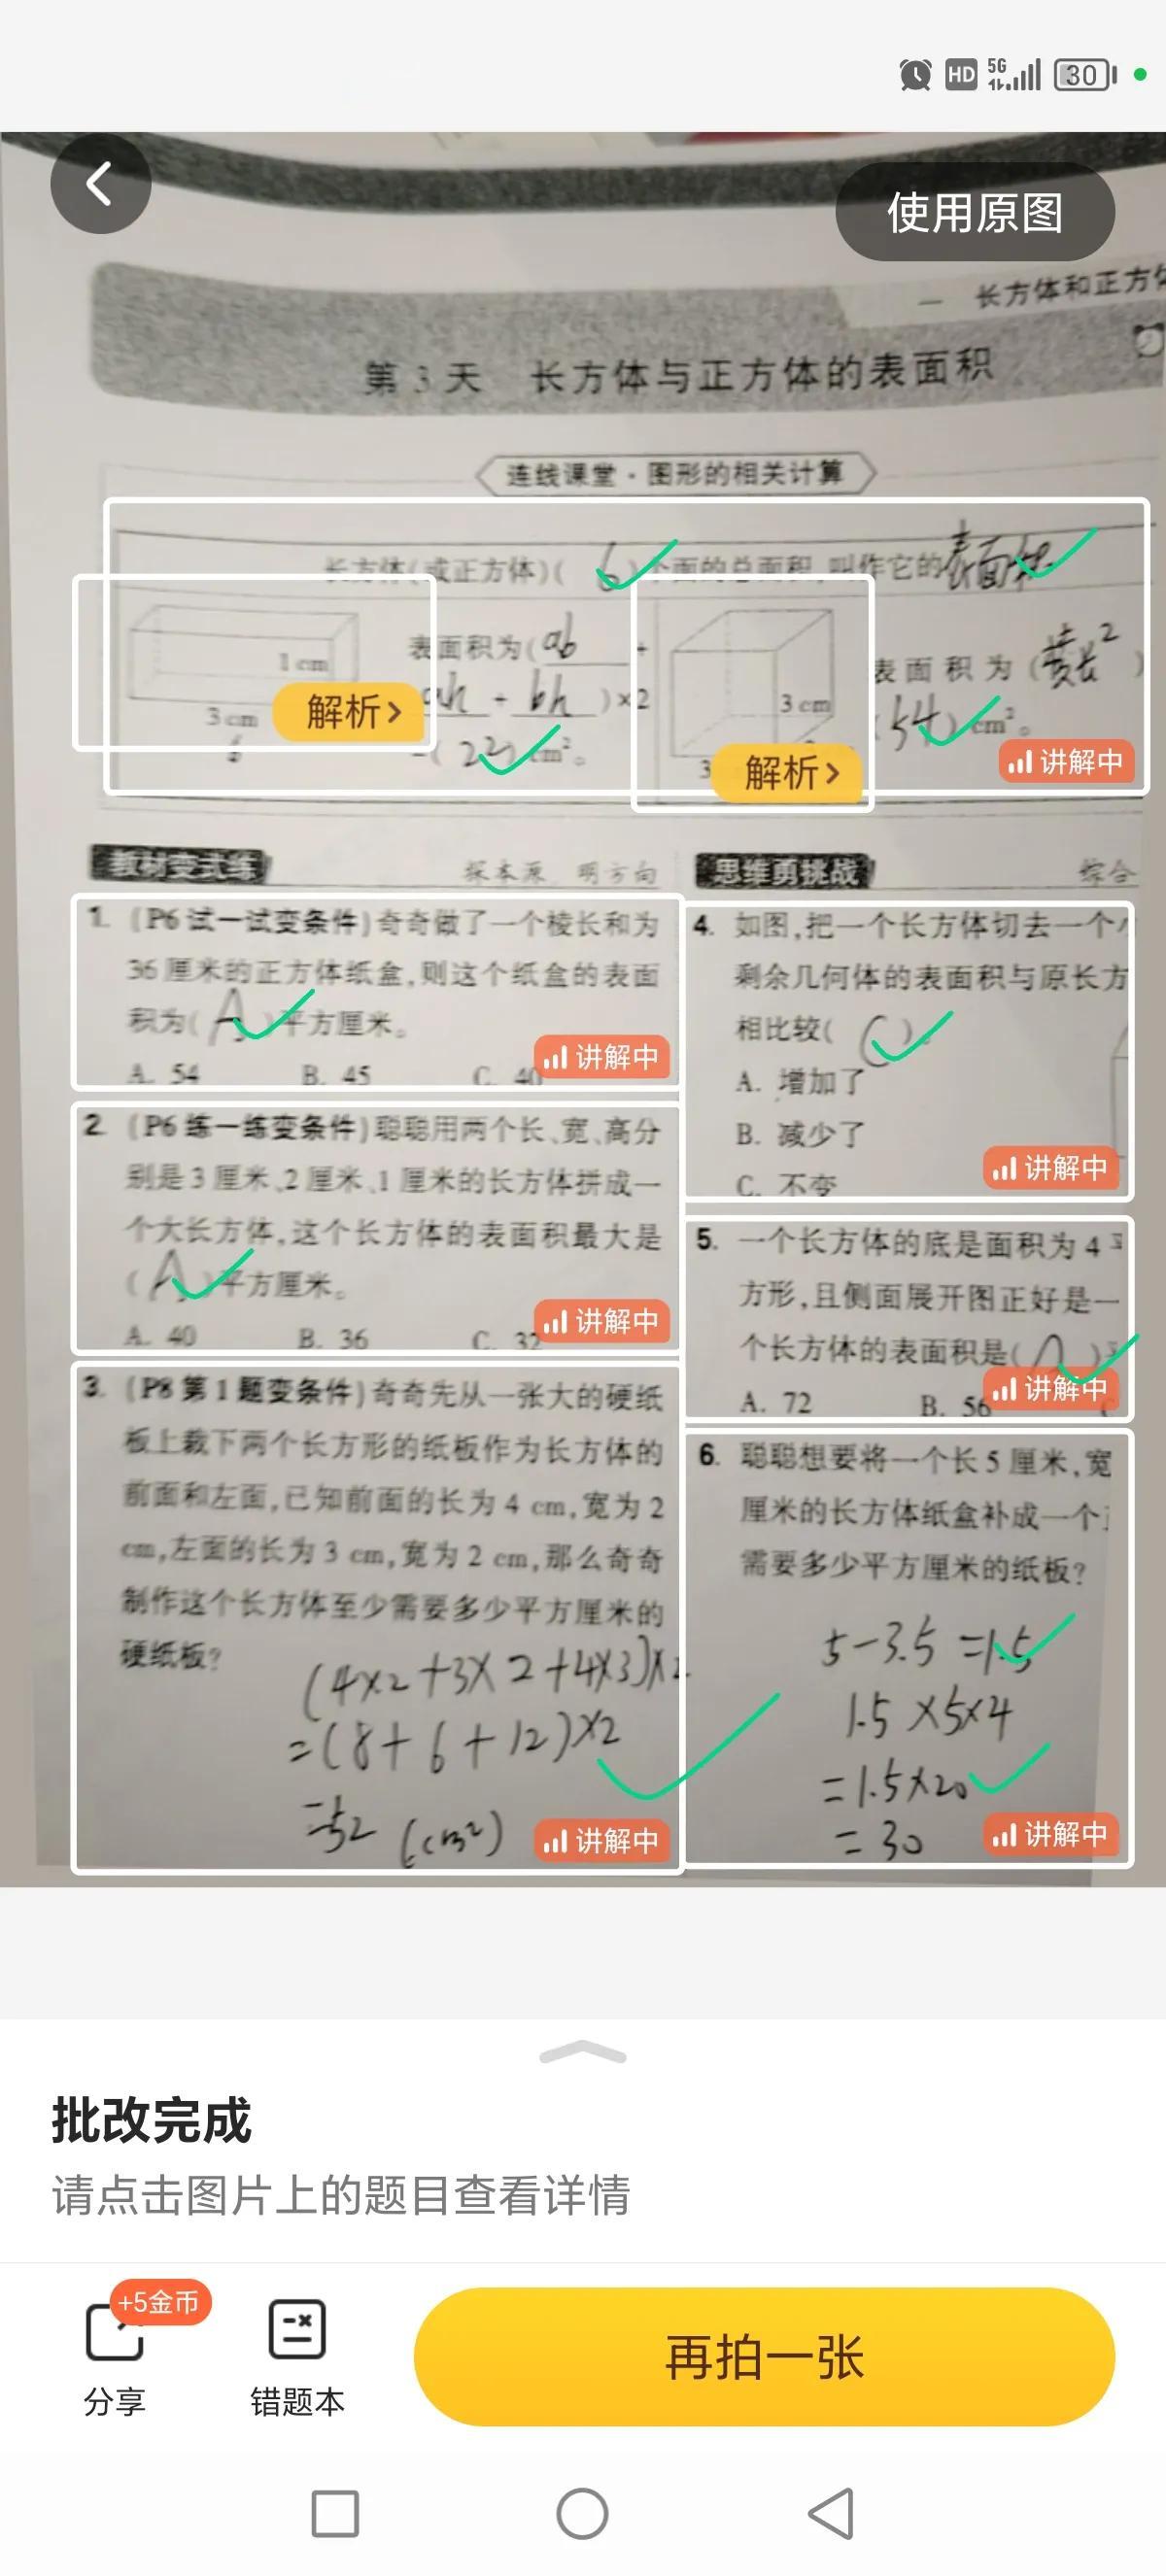 HD 5G 30
使用原图
一 长方体和正方体
第3天 长方体与正方体的表面积
连线课堂·图形的相关计算
长方体(或正方体)( 6 )个面的总面积,叫作它的表面积
1 cm
3 cm
解析>
表面积为(ab +
ah + bh )×2
=(22)cm²。
3 cm
3
解析>
表面积为(棱长²
(54)cm²。
讲解中
教材变式练 探本源 明方向
1. (P6试一试变条件)奇奇做了一个棱长和为
36厘米的正方体纸盒,则这个纸盒的表面
积为( A )平方厘米。
A. 54 B. 45 C. 40
讲解中
2. (P6练一练变条件)聪聪用两个长、宽、高分
别是3厘米、2厘米、1厘米的长方体拼成一
个大长方体,这个长方体的表面积最大是
( A )平方厘米。
A. 40 B. 36 C. 32
讲解中
3. (P8第1题变条件)奇奇先从一张大的硬纸
板上裁下两个长方形的纸板作为长方体的
前面和左面,已知前面的长为4 cm,宽为2
cm,左面的长为3 cm,宽为2 cm,那么奇奇
制作这个长方体至少需要多少平方厘米的
硬纸板?
(4×2+3×2+4×3)×2
=(8+6+12)×2
=52 (cm²)
讲解中
思维勇挑战 综合
4. 如图,把一个长方体切去一个小
剩余几何体的表面积与原长方
相比较( C )。
A. 增加了
B. 减少了
C. 不变
讲解中
5. 一个长方体的底是面积为4平
方形,且侧面展开图正好是一
个长方体的表面积是( A )平
A. 72 B. 56 C
讲解中
6. 聪聪想要将一个长5厘米,宽
厘米的长方体纸盒补成一个正
需要多少平方厘米的纸板?
5-3.5=1.5
1.5×5×4
=1.5×20
=30
讲解中
批改完成
请点击图片上的题目查看详情
+5金币
分享
错题本
再拍一张